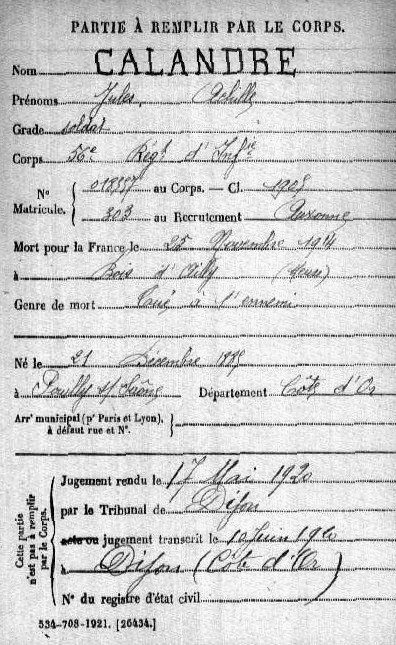 PARTIE À REMPLIR PAR LE CORPS.
Nom CALANDRE
Prénoms Jules Achille
Grade soldat
Corps 56e Régt d'Infie
N° Matricule. { 018557 au Corps. — Cl. 1905
303 au Recrutement Auxonne
Mort pour la France le 25 Novembre 1914
à Bois d'Ailly (Meuse)
Genre de mort Tué à l'ennemi
Né le 21 Décembre 1885
à Pouilly s/ Saône Département Côte d'Or
Arrt municipal (pr Paris et Lyon), à défaut rue et N°. }
Cette partie n'est pas à remplir par le Corps.
Jugement rendu le 17 Mai 1920
par le Tribunal de Dijon
acte ou jugement transcrit le 10 Juin 1920
à Dijon (Côte d'Or)
N° du registre d'état civil
534-708-1921. [26434.]